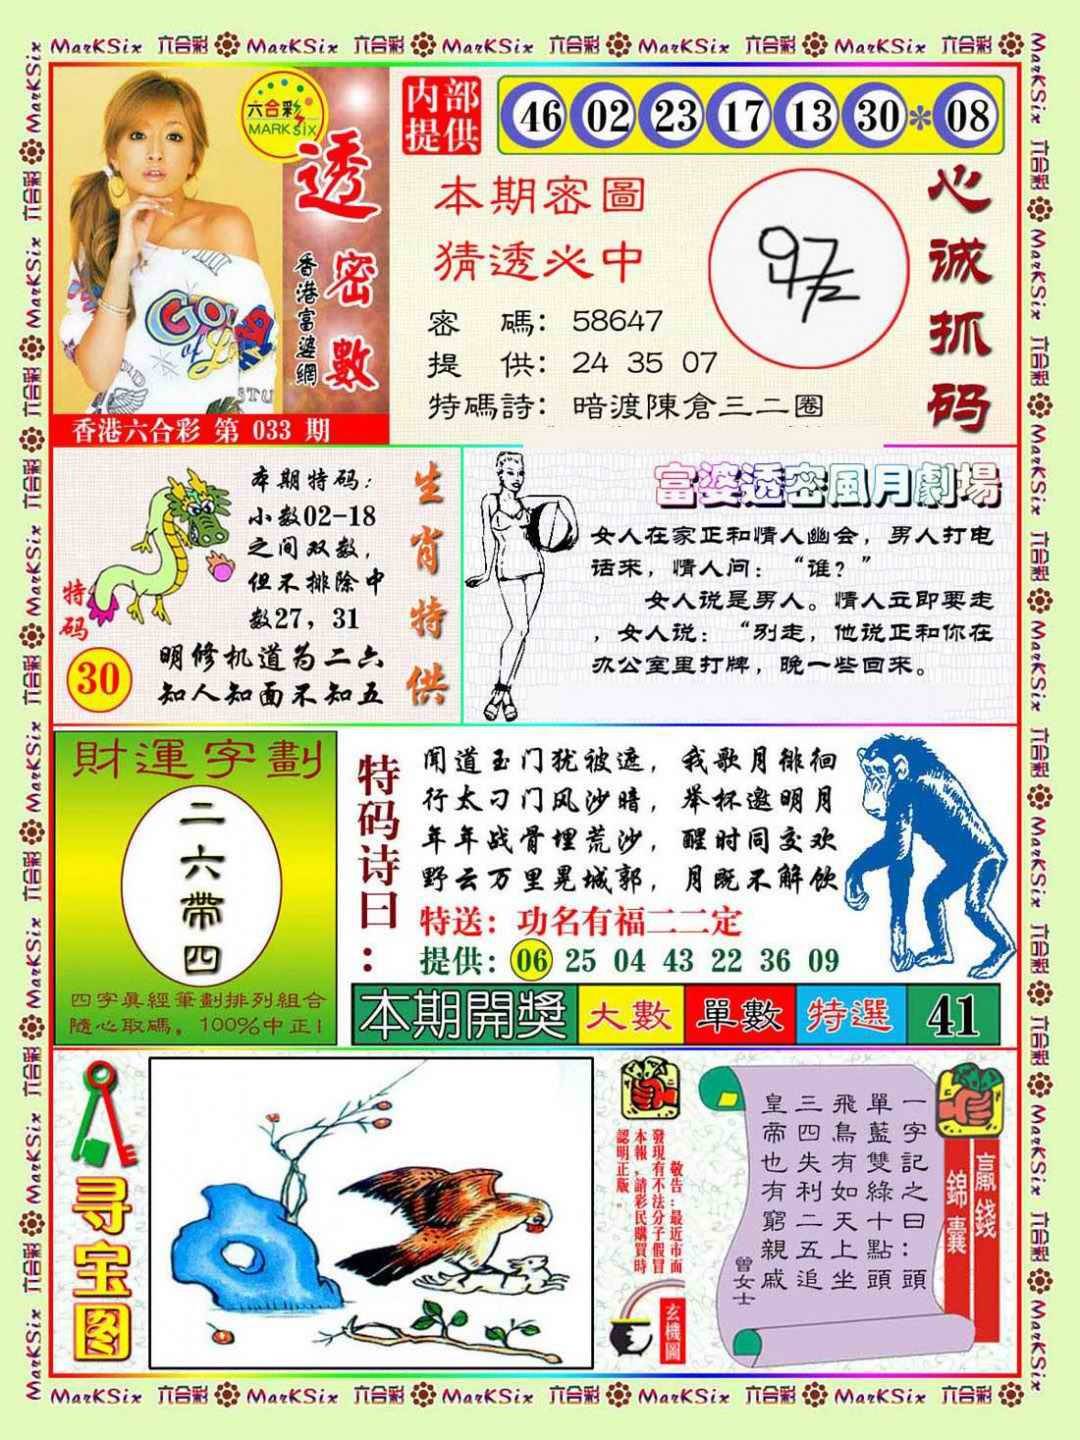 MarKSix 六合彩 MarKSix 六合彩 MarKSix 六合彩 MarKSix 六合彩 MarKSix 六合彩
六合彩
MARK SIX
透密數
香港富婆網
香港六合彩 第 033 期
内部
提供
46 02 23 17 13 30 * 08
本期密圖
猜透必中
密 碼：58647
提 供：24 35 07
特碼詩：暗渡陳倉三二圈
心诚抓码
本期特码：
小数02-18
之间双数，
但不排除中
数27，31
特码
30
明修机道为二六
知人知面不知五
生肖特供
富婆透密風月劇場
女人在家正和情人幽会，男人打电
话来，情人问：“谁？”
女人说是男人。情人立即要走
，女人说：“别走，他说正和你在
办公室里打牌，晚一些回来。
財運字劃
二六帶四
四字眞經筆劃排列組合
隨心取碼，100%中正!
特码诗曰：
闻道玉门犹被遮，我歌月徘徊
行太刁门风沙暗，举杯邀明月
年年战骨埋荒沙，醒时同交欢
野云万里晃城郭，月既不解饮
特送：功名有福二二定
提供：06 25 04 43 22 36 09
本期開獎 大數 單數 特選 41
寻宝图
敬告：最近市面
發現有不法分子假冒
本報，請彩民購買時
認明正版。
玄機圖
贏錢
錦囊
一字記之曰：頭
單藍雙綠十點頭
飛鳥有如天上坐
三四失利二五追
皇帝也有窮親戚
曾女士
MarKSix 六合彩 MarKSix 六合彩 MarKSix 六合彩 MarKSix 六合彩 MarKSix 六合彩